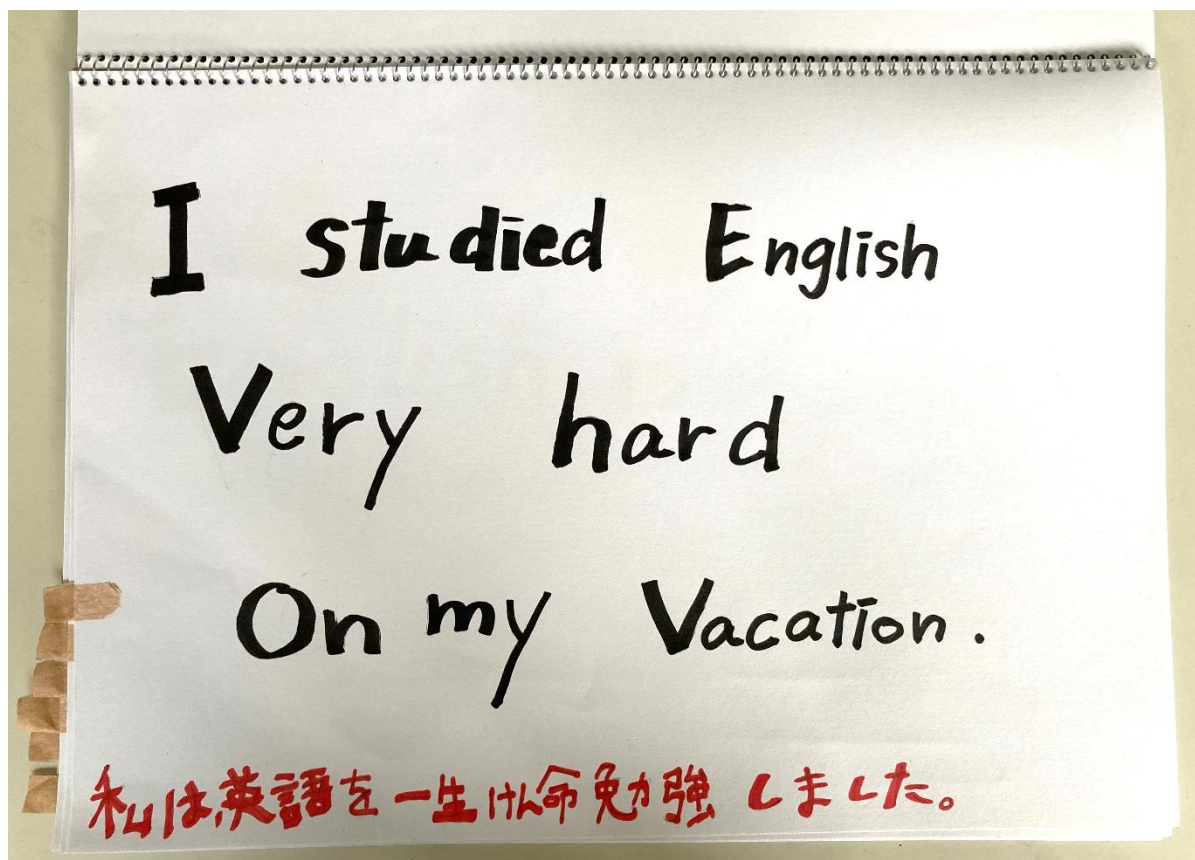 I studied English
Very hard
On my Vacation.
私は英語を一生けん命勉強しました。